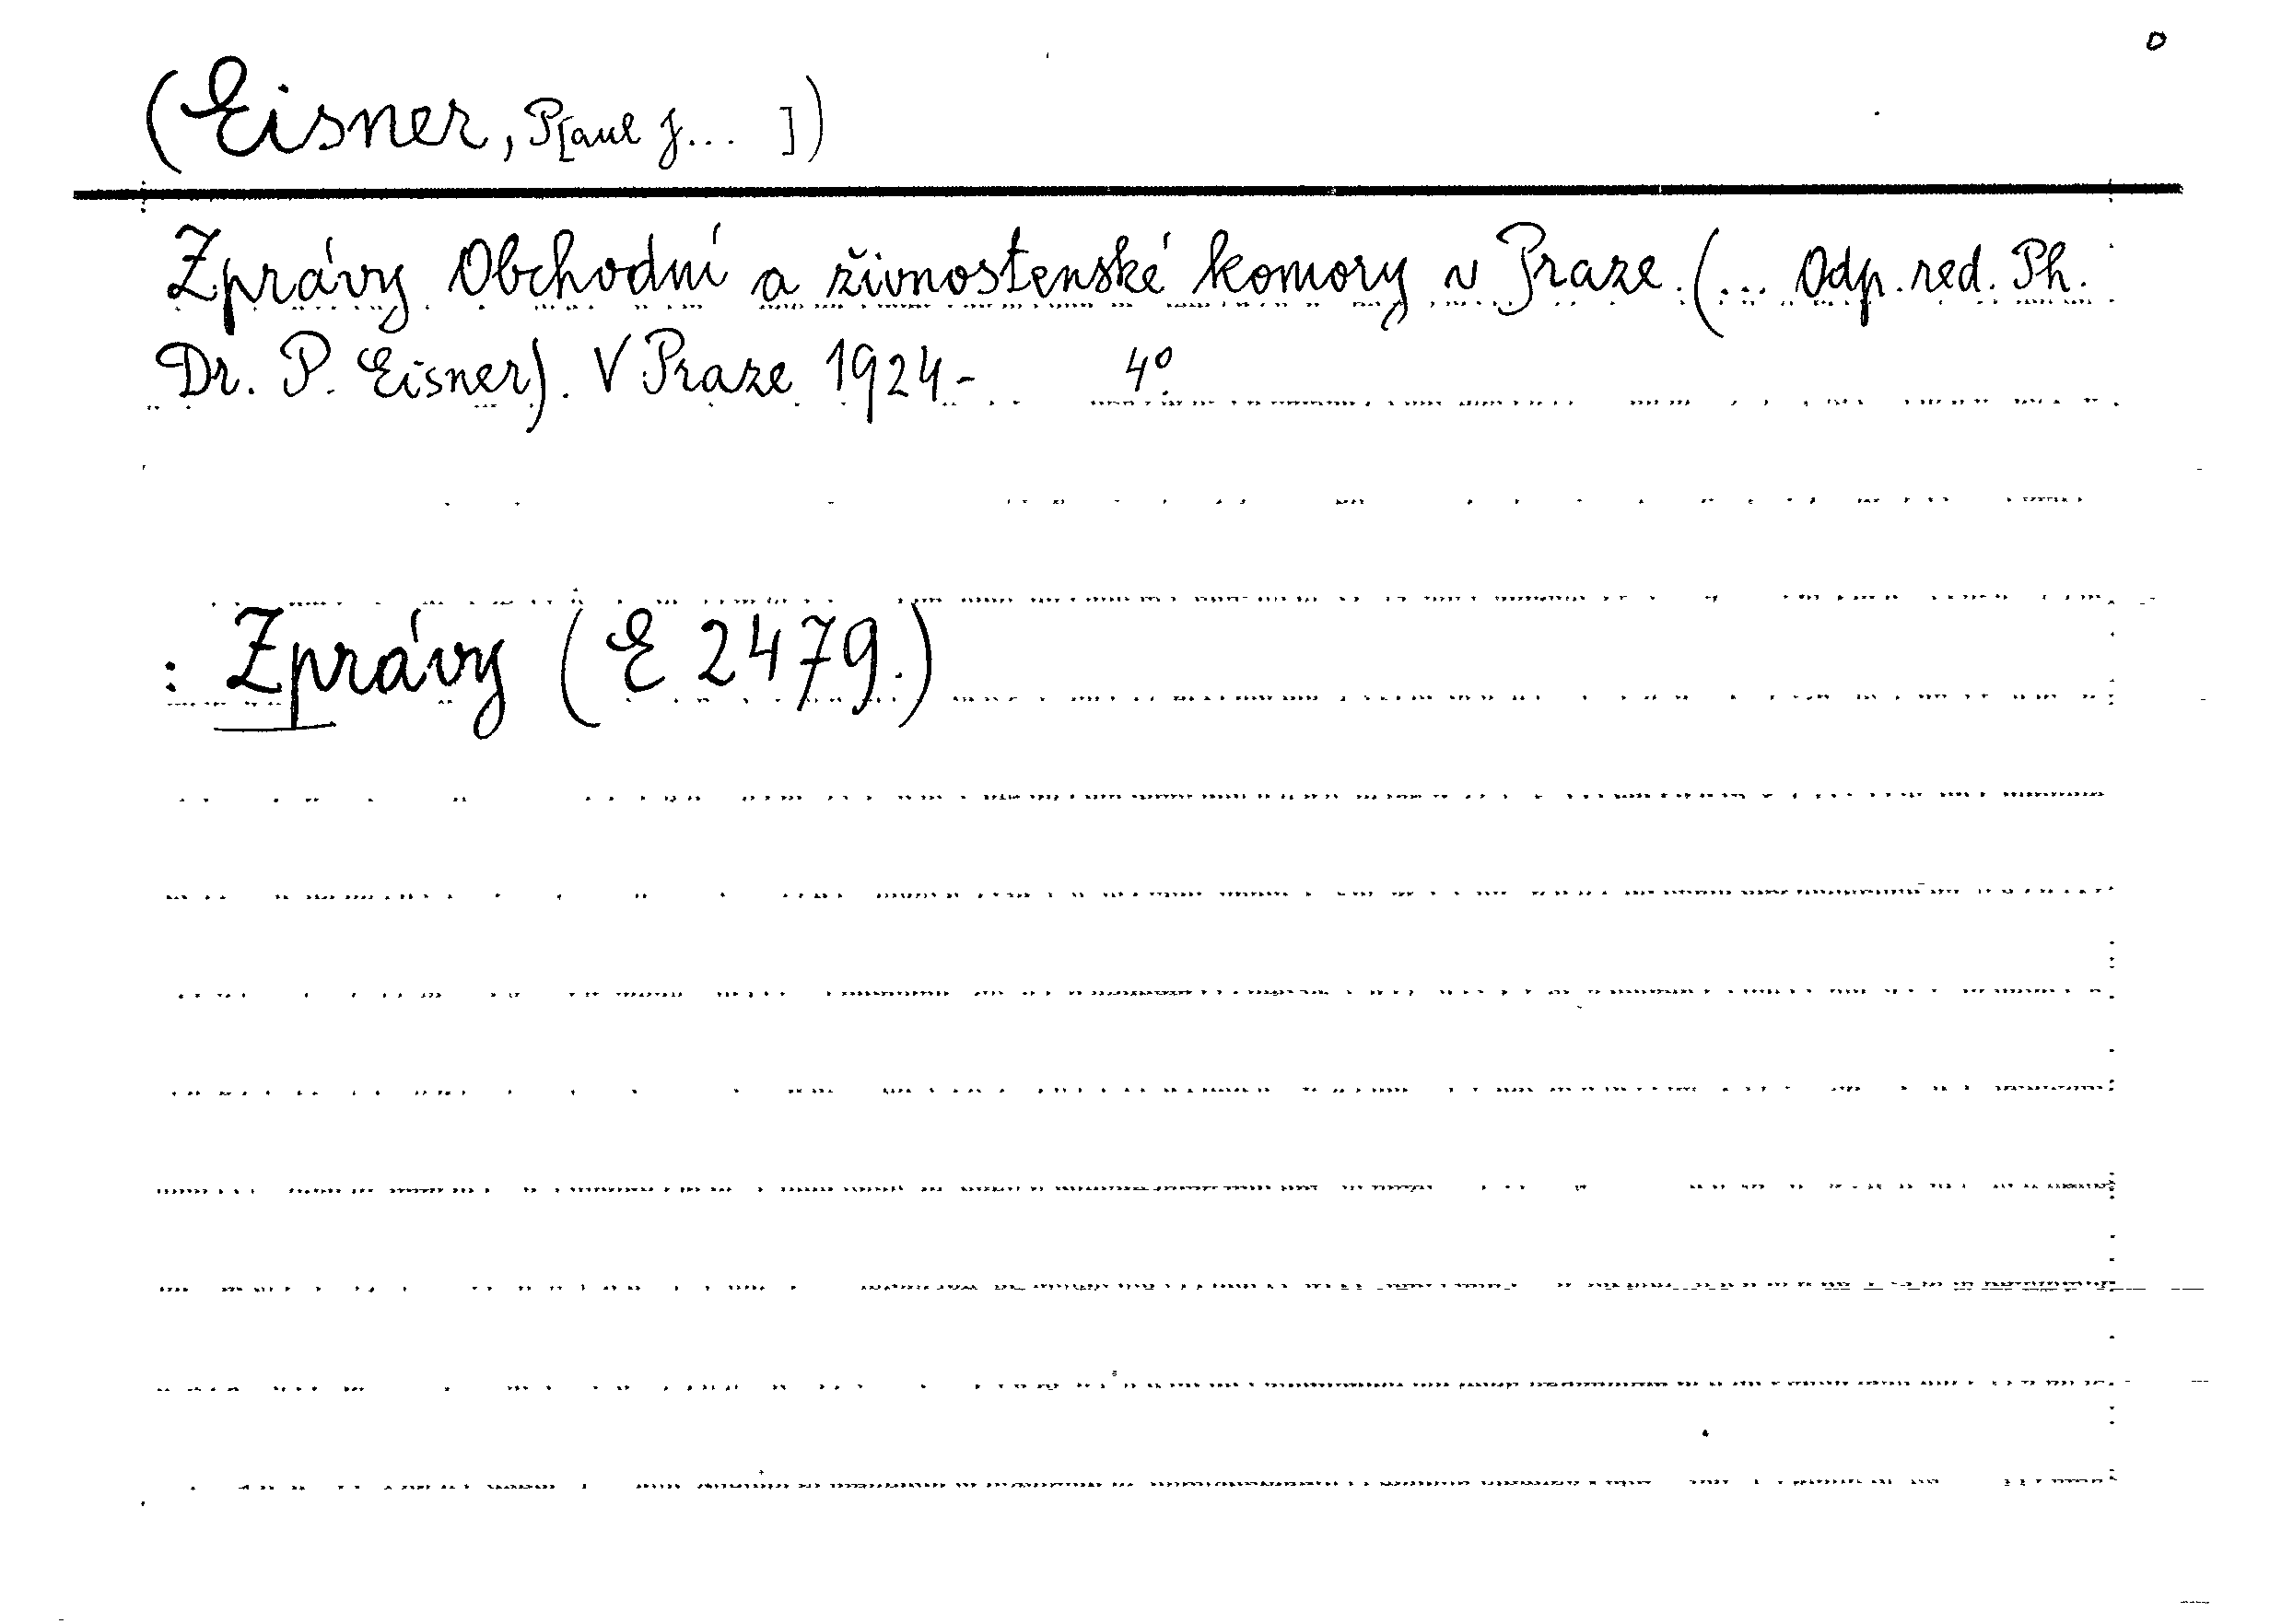 o
(Eisner, P[aul J... ])
Zprávy Obchodní a živnostenské komory v Praze. (... Odp. red. Ph.
Dr. P. Eisner). V Praze 1924- 4°.
: Zprávy (E 2479.)